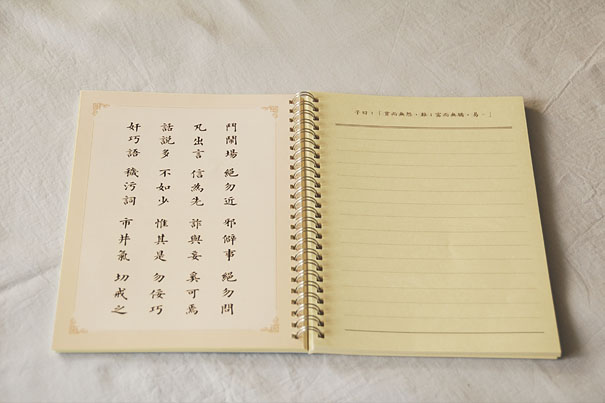 鬥鬧場 絕勿近 邪僻事 絕勿問
凡出言 信為先 詐與妄 奚可焉
話說多 不如少 惟其是 勿佞巧
奸巧語 穢污詞 市井氣 切戒之
子曰：「貧而無怨，難；富而無驕，易。」